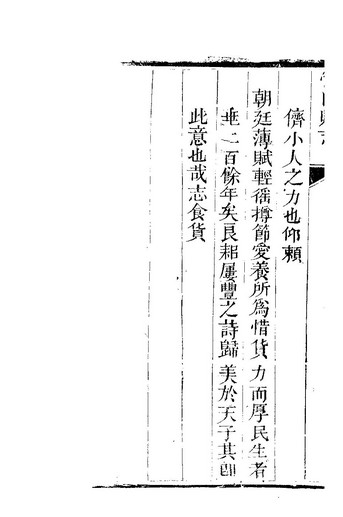 儕小人之力也仰賴
朝廷薄賦輕徭撙節愛養所爲惜貨力而厚民生者
垂二百餘年矣良耜屢豐之詩歸美於天子其卽
此意也哉志食貨